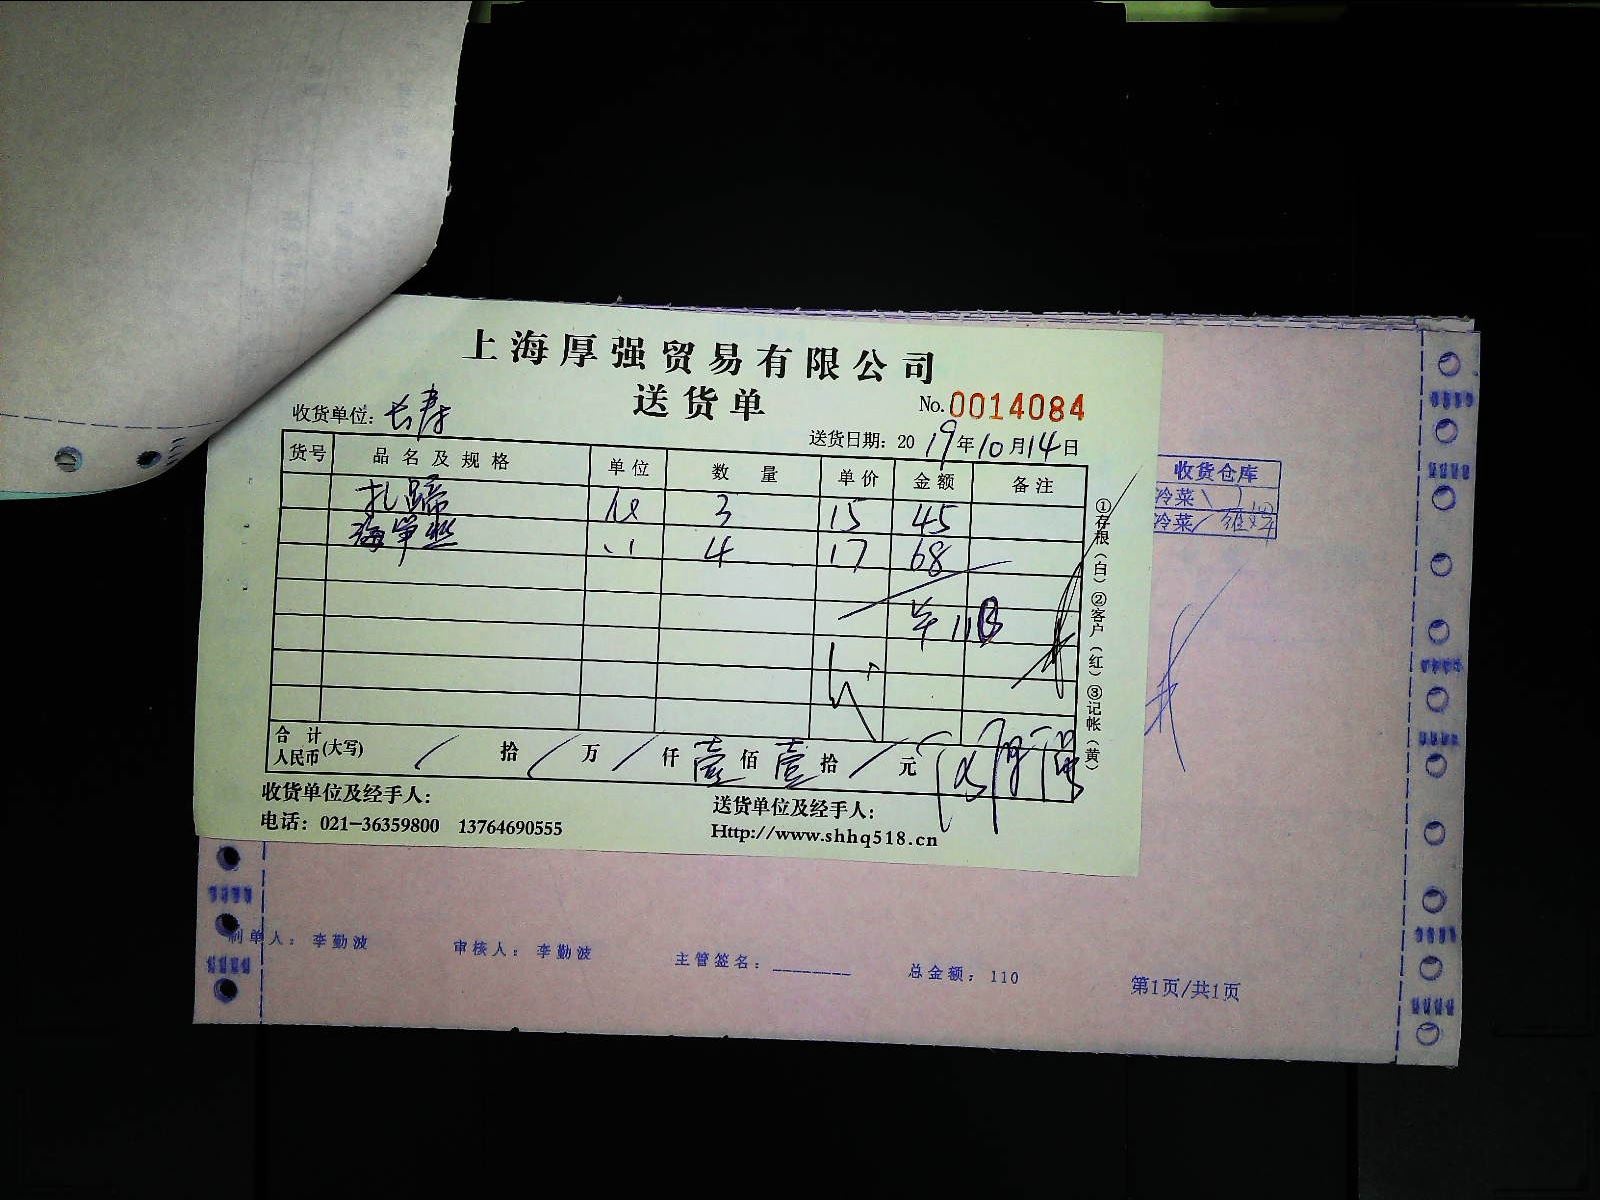 上海厚强贸易有限公司
送货单
No.0014084
收货单位：长寿
送货日期：2019年10月14日
货号 品名及规格 单位 数量 单价 金额 备注
扎蹄 3 15 45
海草丝 4 17 68
合计人民币(大写) / 拾 / 万 / 仟 壹 佰 壹 拾 / 元
①存根（白）②客户（红）③记帐（黄）
收货单位及经手人：
送货单位及经手人：
电话：021-36359800 13764690555
Http://www.shhq518.cn
收货仓库
冷菜
冷菜
制单人：李勤波 审核人：李勤波 主管签名：________ 总金额：110 第1页/共1页